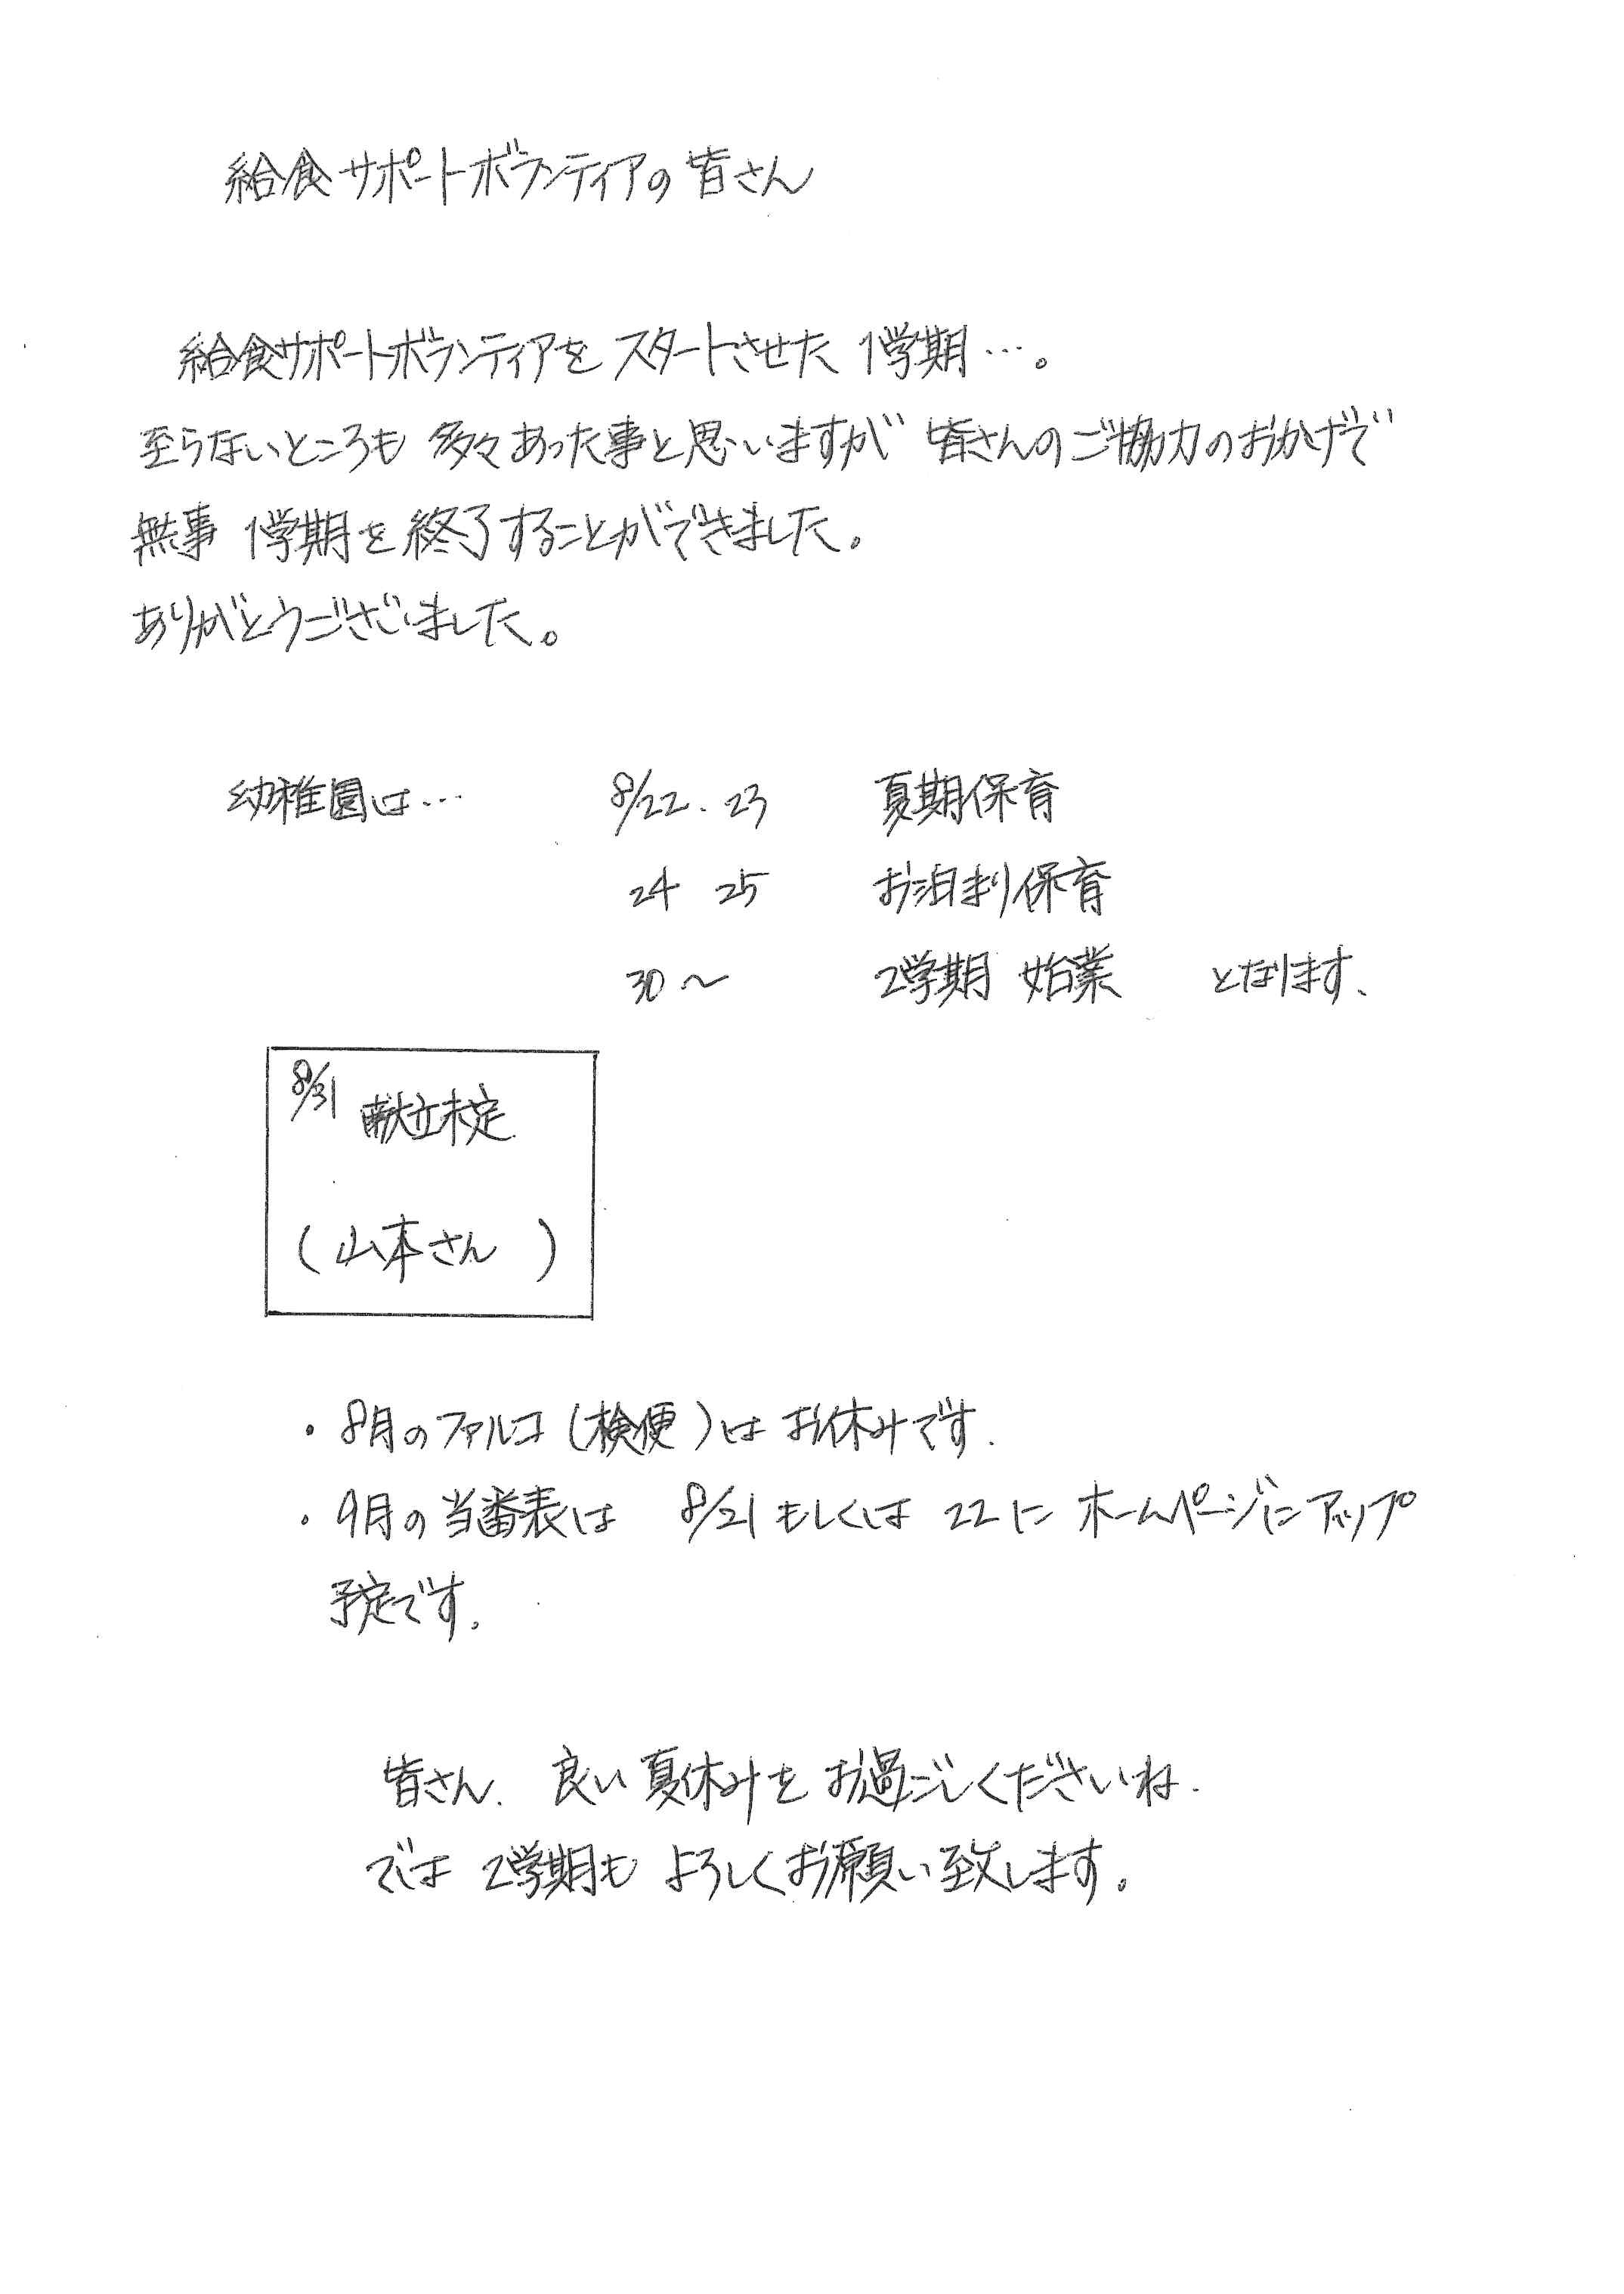 給食サポートボランティアの皆さん
給食サポートボランティアをスタートさせた 1学期…。
至らないところも 多々あった事と思いますが 皆さんのご協力のおかげで
無事 1学期を終了することができました。
ありがとうございました。
幼稚園は… 8/22.23 夏期保育
24 25 お泊まり保育
30〜 2学期 始業 となります、
8/31 献立未定
(山本さん )
・8月のファルコ(検便)は お休みです.
・9月の当番表は 8/21 もしくは 22に ホームページにアップ
予定です。
皆さん、良い夏休みをお過ごしくださいね.
では 2学期も よろしくお願い致します。